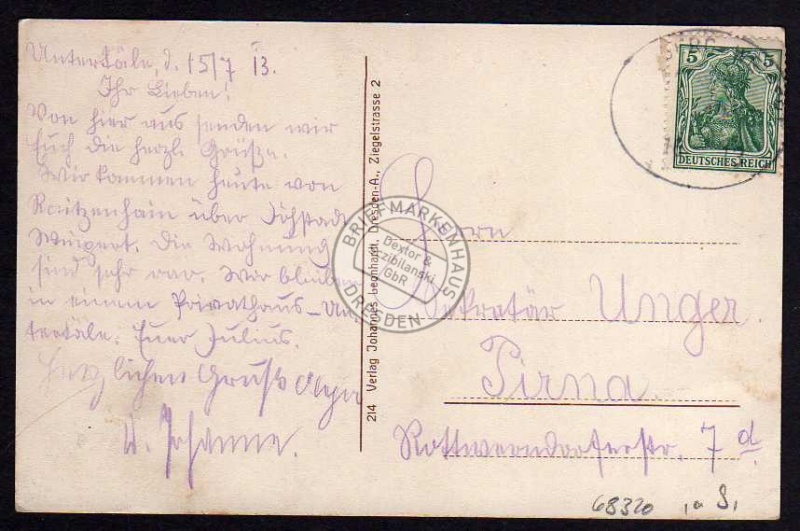 Unterkäle, d. 15/7 13.
Ihr Lieben!
Von hier aus senden wir
Euch die herzl. Grüße.
Wir kommen heute von
Raitzenhain über Jöhstadt
Weipert. Die Wohnung
sind sehr rar. Wir bleiben
in einem Privathaus – Un-
terkäle. Euer Julius.
Herzlichen Gruß
u. Johanne.
214 Verlag Johannes Leonhardt, Dresden-A., Ziegelstrasse 2
Herrn
Sekretär Unger
Pirna.
Rottwerndorferstr. 7 d.
5 5
DEUTSCHES REICH
BRIEFMARKENHAUS
Dextor &
czibilanski
GbR
DRESDEN
68320